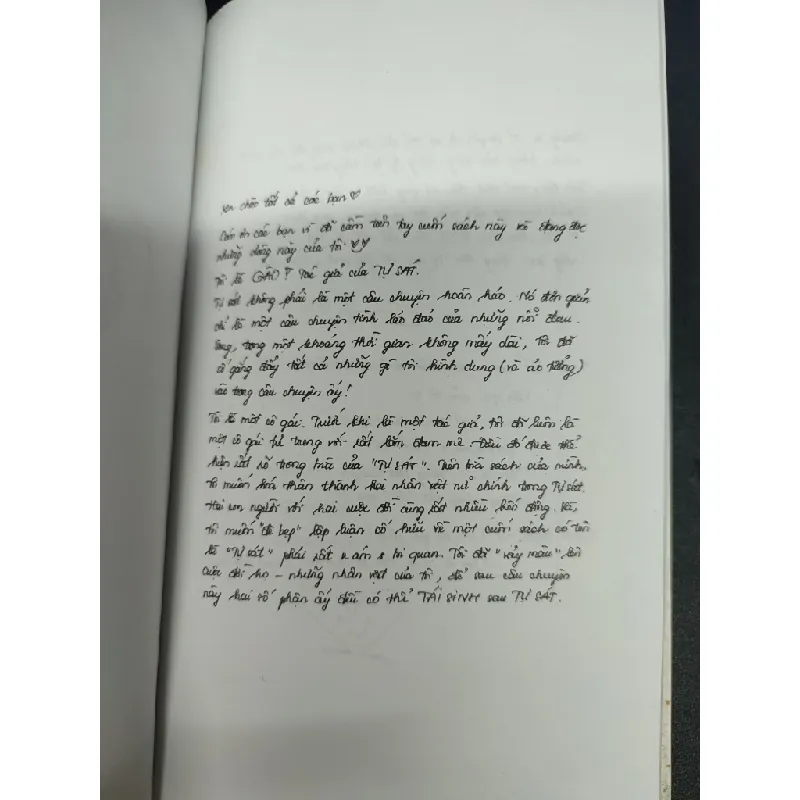 Xin chào tất cả các bạn ♡
Cảm ơn các bạn vì đã cầm trên tay cuốn sách này và đang đọc
những dòng này của tôi ♡♡
Tôi là Tác giả của TỰ SÁT.
Tự sát không phải là một câu chuyện hoàn hảo. Nó đơn giản
chỉ là một câu chuyện tính của những nỗi đau.
Song, trong một khoảng thời gian không mấy dài, tôi đã
cố gắng đẩy tất cả những gì tôi hình dung (và áo tưởng)
vào trong câu chuyện ấy!
Tôi là một cô gái. Trước khi là một tác giả, tôi đã luôn là
một cô gái tự trong với rất lớn đau mà đó được thể
hiện rất rõ trong bìa của "TỰ SÁT". Trên bìa sách của mình,
tôi muốn hóa thân thành hai nhân vật nữ chính trong Tự sát.
Hai con người với hai cuộc đời cùng rất nhiều biến động. Và,
tôi muốn "đè bẹp" lập luận cố hữu về một cuốn sách có tên
là "Tự sát" phải rất u ám & bi quan. Tôi đã "vẩy màu" lên
cuộc đời họ - những nhân vật của tôi, để sau câu chuyện
này hai số phận ấy đều có thể TÁI SINH sau TỰ SÁT.